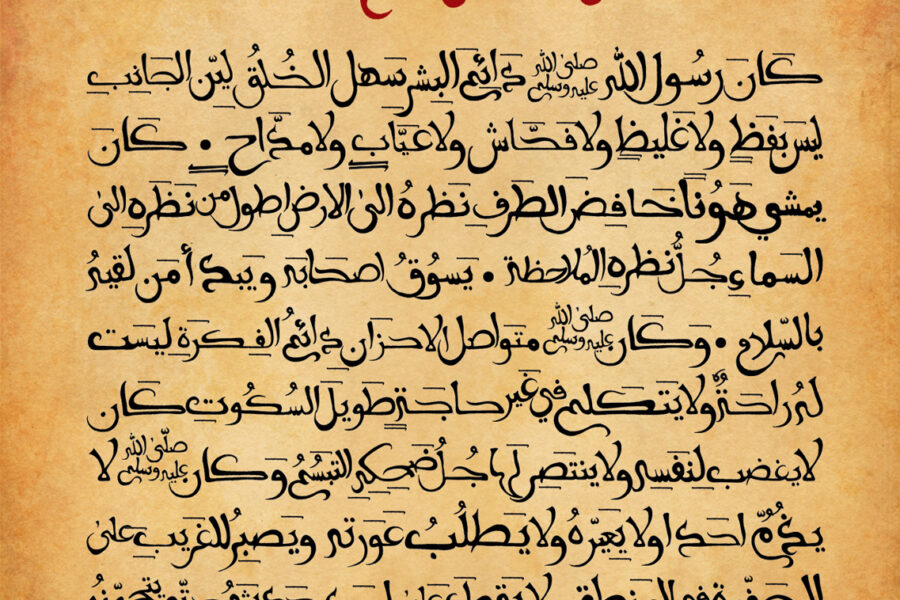 كَانَ رسُول الله صلى الله عليه وسلم دَائِمَ البِشرِ سَهل الخُلُقِ لَيِّن الجَانِبِ
ليسَ بفَظٍ ولا غليظٍ ولا فحَّاش ولا عيَّابٍ ولا مدَّاح • كَانَ
يمشي هَوْناً خَافِضَ الطرفِ نَظرهُ الىَ الارضِ اطول من نَظَرِهِ الىَ
السَماءِ جُلُّ نظرهِ المُلاحظة • يَسوُقُ اصحَابَه ويَبدَأ مَن لقيَهُ
بالسَّلام • وَكَان صلى الله عليه وسلم متوَاصلَ الاحزان دَائمُ الفِكرَة ليسَت
لهُ رَاحَةٌ ولا يَتكلم في غَير حاجَةٍ طويلَ السُكُوت كَان
لا يغضب لنَفسِه ولا ينتصِر لها جُلُ ضحكِه التبَسُّمُ وَكَان صلى الله عليه وسلم لا
يذُمُّ احَدا ولا يعَيّرهُ ولا يَطلُبُ عَورَته ويَصبرُ للغَريبِ علىَ